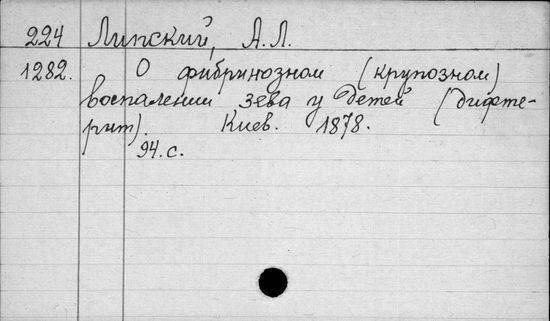 224 Липский, А.Л.
1282. О фибринозном (крупозном)
воспалении зева у детей (дифте-
рит). Киев. 1878.
94.с.